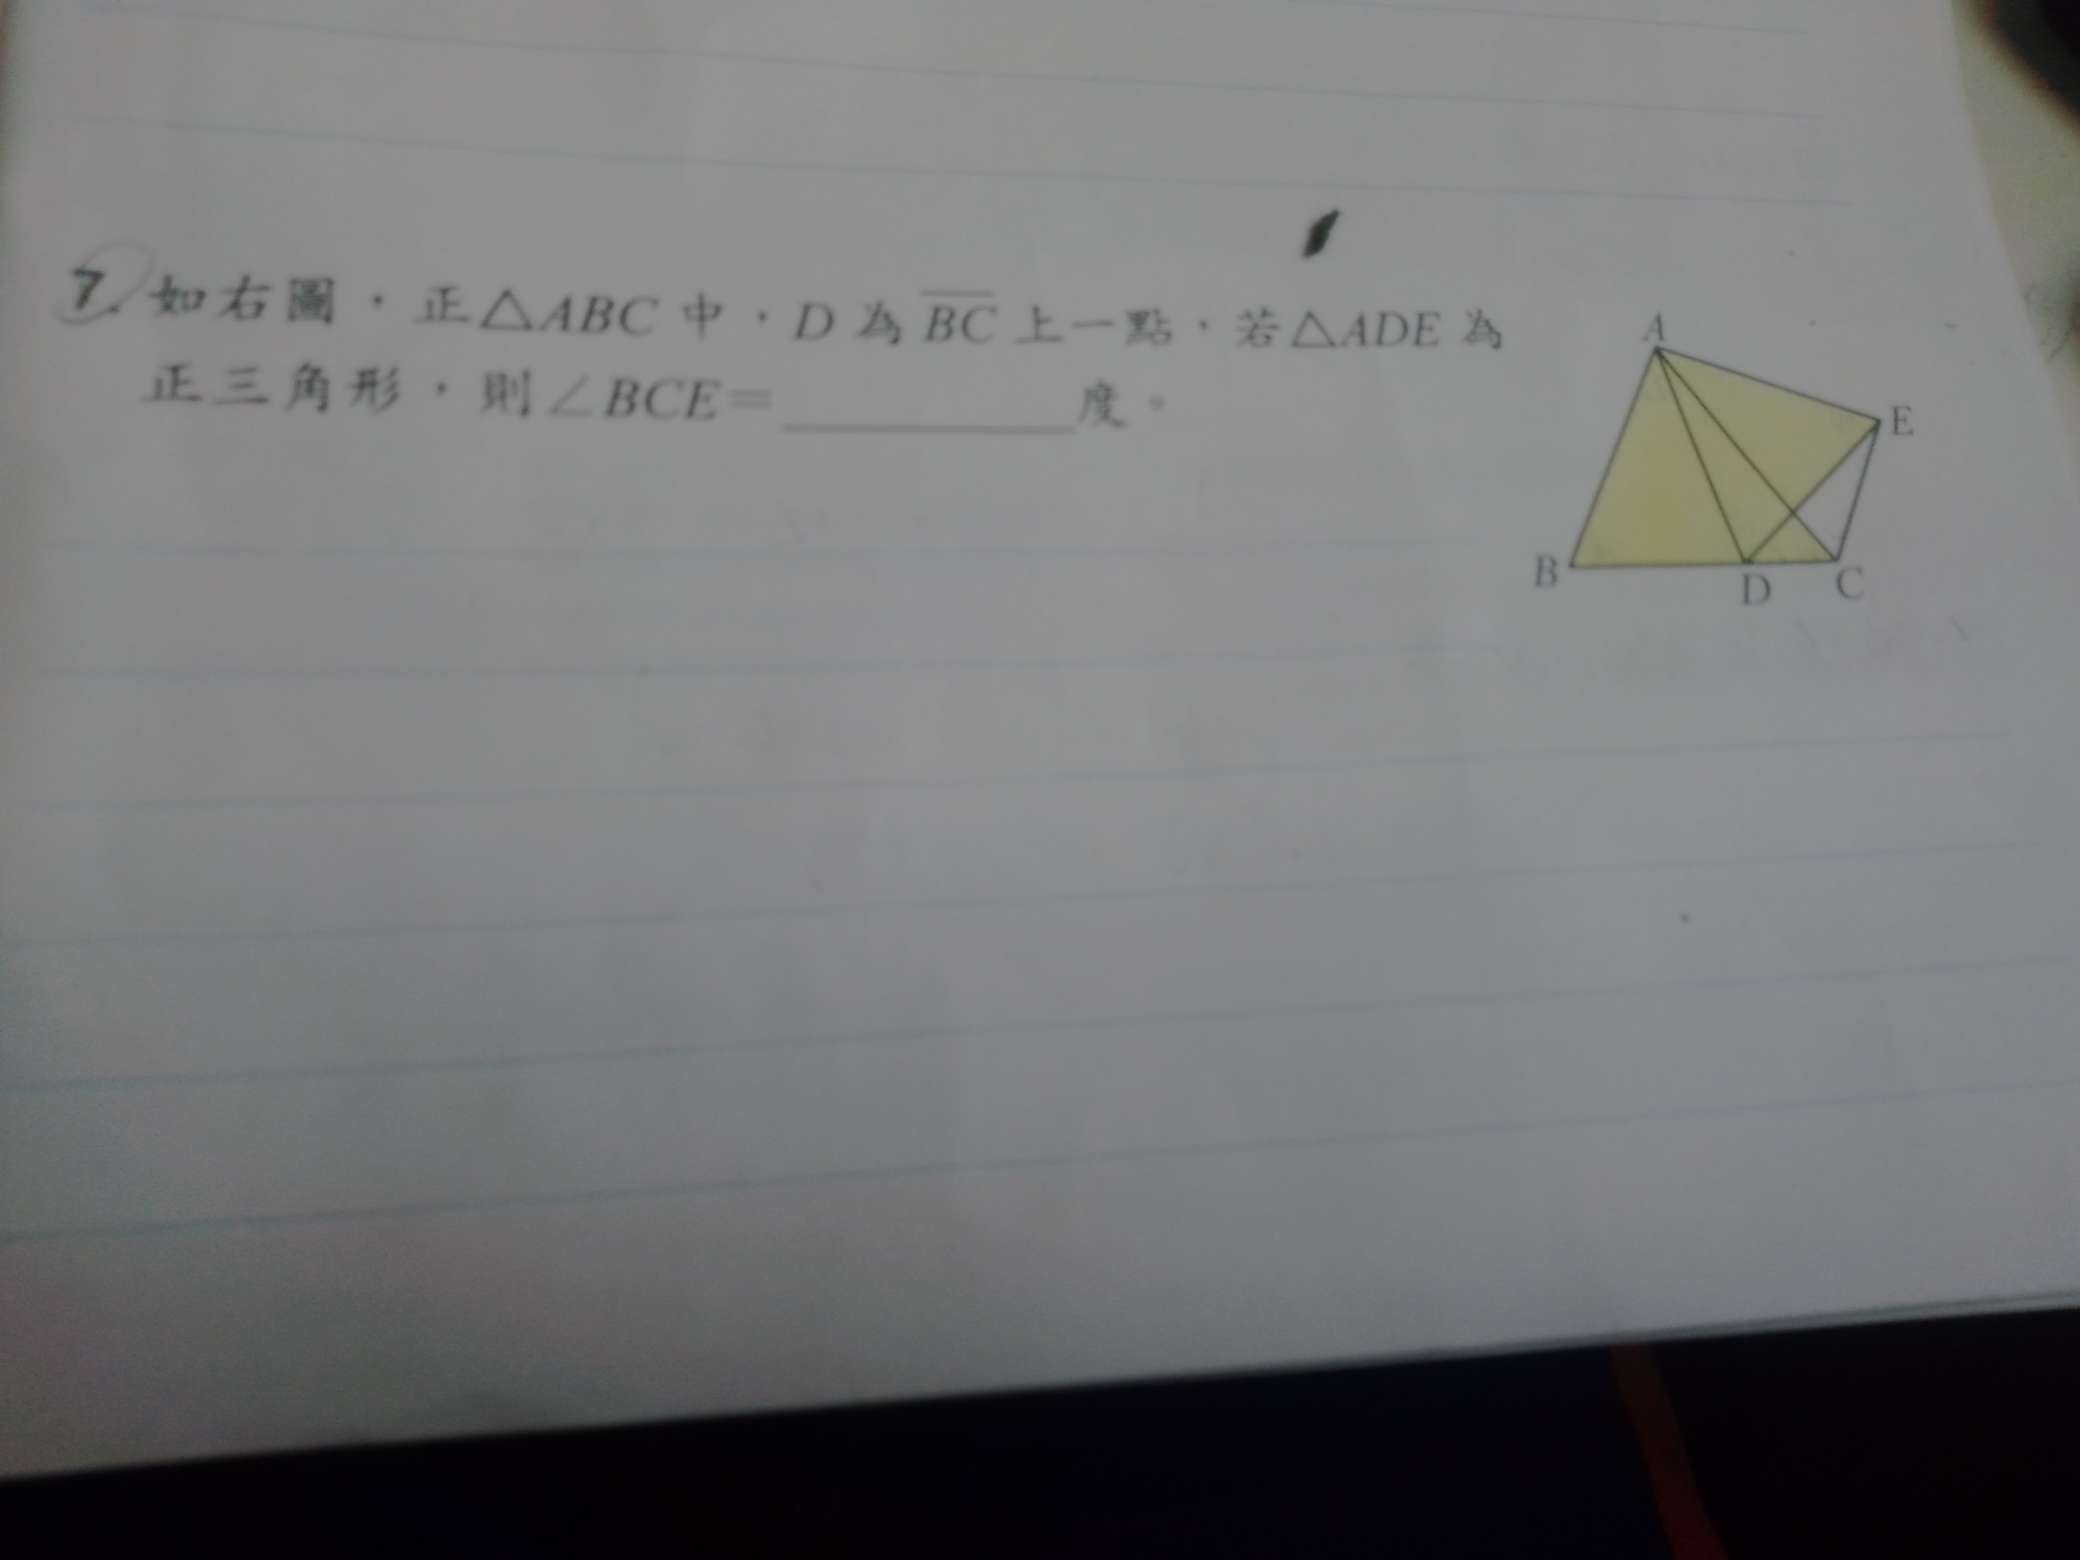 7. 如右圖，正△ABC 中，D 為 BC 上一點，若△ADE 為
正三角形，則∠BCE=__________度。
A
E
B
D
C